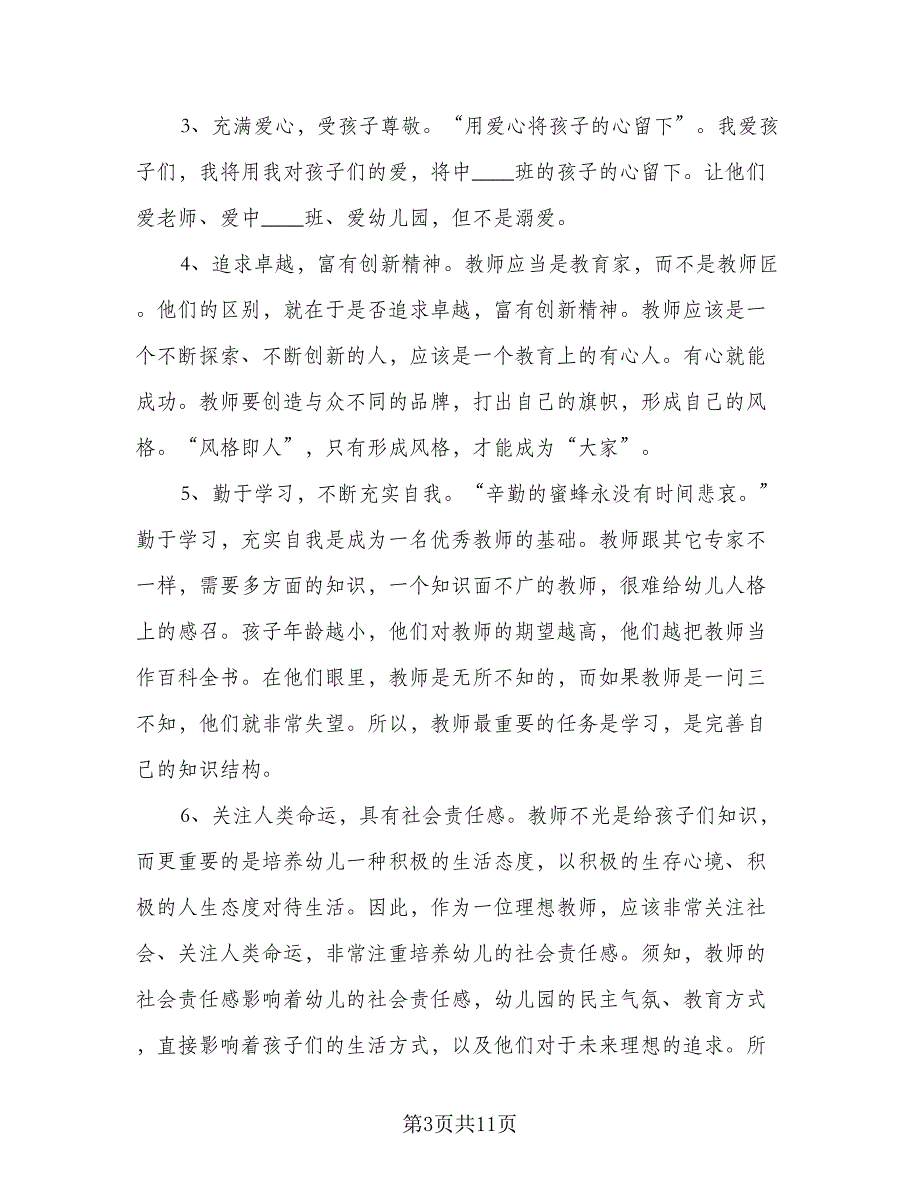 3、充满爱心，受孩子尊敬。“用爱心将孩子的心留下”。我爱孩
子们，我将用我对孩子们的爱，将中____班的孩子的心留下。让他们
爱老师、爱中____班、爱幼儿园，但不是溺爱。
4、追求卓越，富有创新精神。教师应当是教育家，而不是教师匠
。他们的区别，就在于是否追求卓越，富有创新精神。教师应该是一
个不断探索、不断创新的人，应该是一个教育上的有心人。有心就能
成功。教师要创造与众不同的品牌，打出自己的旗帜，形成自己的风
格。“风格即人”，只有形成风格，才能成为“大家”。
5、勤于学习，不断充实自我。“辛勤的蜜蜂永没有时间悲哀。”
勤于学习，充实自我是成为一名优秀教师的基础。教师跟其它专家不
一样，需要多方面的知识，一个知识面不广的教师，很难给幼儿人格
上的感召。孩子年龄越小，他们对教师的期望越高，他们越把教师当
作百科全书。在他们眼里，教师是无所不知的，而如果教师是一问三
不知，他们就非常失望。所以，教师最重要的任务是学习，是完善自
己的知识结构。
6、关注人类命运，具有社会责任感。教师不光是给孩子们知识，
而更重要的是培养幼儿一种积极的生活态度，以积极的生存心境、积
极的人生态度对待生活。因此，作为一位理想教师，应该非常关注社
会、关注人类命运，非常注重培养幼儿的社会责任感。须知，教师的
社会责任感影响着幼儿的社会责任感，幼儿园的民主气氛、教育方式
，直接影响着孩子们的生活方式，以及他们对于未来理想的追求。所
第3页共11页